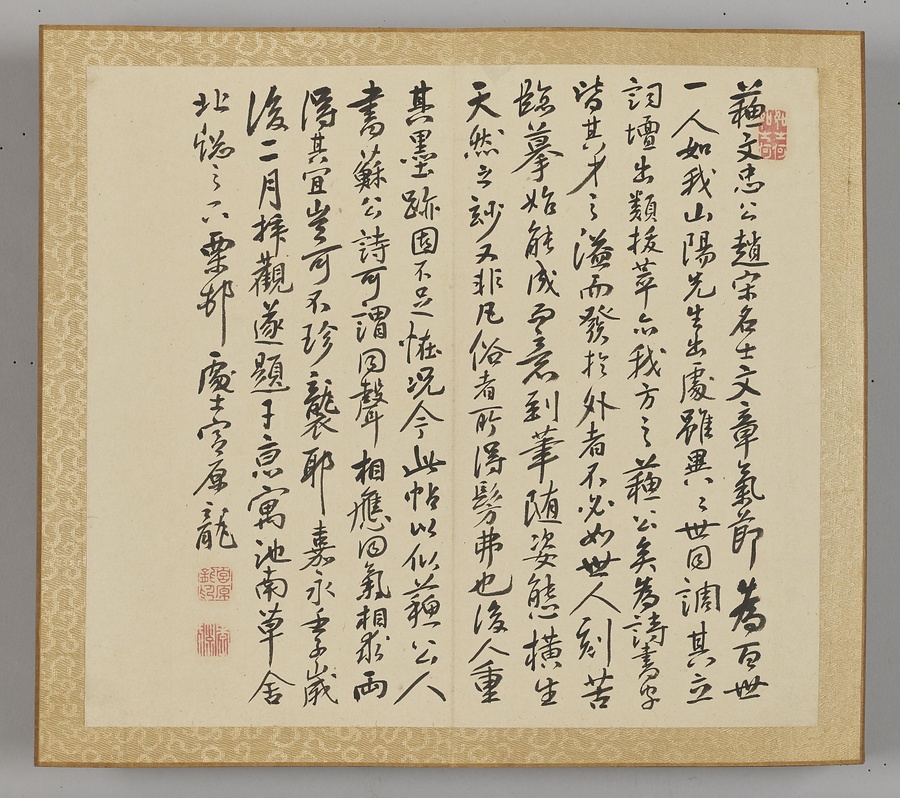 蘇文忠公趙宋名士文章氣節為百世
一人如我山陽先生出處雖異〻世同調其立
詞壇出類拔萃亦我方之蘇公矣為詩書字
皆其才之溢而發於外者不必如世人刻苦
臨摹始能成而意到筆随姿態橫生
天然之玅又非凡俗者所得髣弗也後人重
其墨跡固不足恠况今此帖以似蘇公人
書蘇公詩可謂同聲相應同氣相求両
得其宜豈可不珍襲耶嘉永壬子歲
後二月拝觀遂題于京寓池南草舍
北窓之下栗邨處士宮原龍